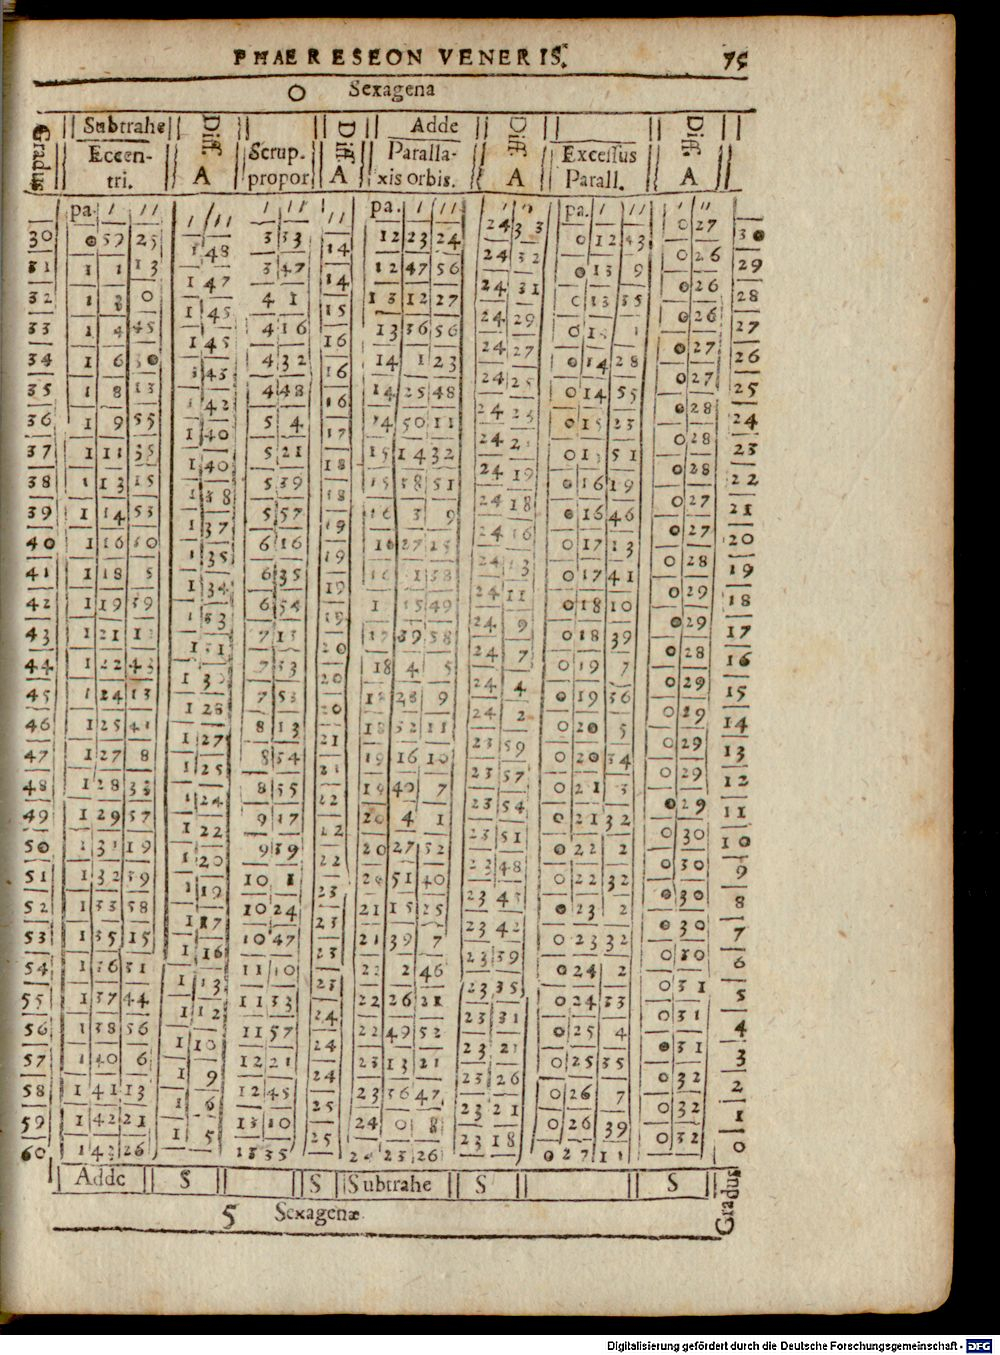 PHAERESEON VENERIS. 75
0 Sexagena
Gradus Subtrahe Diff. Diff. Adde Diff. Excessus Diff.
Eccentri. A Scrup. propor A Parallaxis orbis. A Parall. A
pa. ı ıı ı ıı ı ıı ıı pa. ı ıı ı ıı pa. ı ıı ı ıı
30 0 59 25 1 48 3 33 14 12 23 24 24 33 0 12 43 0 27 30
31 1 1 13 1 47 3 47 14 12 47 56 24 32 0 13 9 0 26 29
32 1 3 0 1 45 4 1 15 13 12 27 24 31 0 13 35 0 26 28
33 1 4 45 1 45 4 16 16 13 36 56 24 29 0 14 1 0 26 27
34 1 6 30 1 43 4 32 16 14 1 23 24 27 0 14 28 0 27 26
35 1 8 13 1 42 4 48 16 14 25 48 24 25 0 14 55 0 27 25
36 1 9 55 1 40 5 4 17 14 50 11 24 23 0 15 23 0 28 24
37 1 11 35 1 40 5 21 18 15 14 32 24 21 0 15 51 0 28 23
38 1 13 15 1 38 5 39 18 15 38 51 24 19 0 16 19 0 28 22
39 1 14 53 1 37 5 57 19 16 3 9 24 18 0 16 46 0 27 21
40 1 16 30 1 35 6 16 19 16 27 25 24 16 0 17 13 0 27 20
41 1 18 5 1 34 6 35 19 16 1 38 24 13 0 17 41 0 28 19
42 1 19 39 1 33 6 54 19 1 15 49 24 11 0 18 10 0 29 18
43 1 21 12 1 31 7 13 20 17 39 58 24 9 0 18 39 0 29 17
44 1 22 43 1 30 7 33 20 18 4 5 24 7 0 19 7 0 28 16
45 1 24 13 1 28 7 53 20 18 28 9 24 4 0 19 36 0 29 15
46 1 25 41 1 27 8 13 21 18 52 11 24 2 0 20 5 0 29 14
47 1 27 8 1 25 8 34 21 19 16 10 23 59 0 20 34 0 29 13
48 1 28 33 1 24 8 55 22 19 40 7 23 57 0 21 3 0 29 12
49 1 29 57 1 22 9 17 22 20 4 1 23 54 0 21 32 0 29 11
50 1 31 19 1 20 9 39 22 20 27 52 23 51 0 22 2 0 30 10
51 1 32 39 1 19 10 1 23 20 51 40 23 48 0 22 32 0 30 9
52 1 33 58 1 17 10 24 23 21 15 25 23 45 0 23 2 0 30 8
53 1 35 15 1 16 10 47 23 21 39 7 23 42 0 23 32 0 30 7
54 1 36 31 1 13 11 10 23 22 2 46 23 39 0 24 2 0 30 6
55 1 37 44 1 12 11 33 24 22 26 21 23 35 0 24 33 0 31 5
56 1 38 56 1 10 11 57 24 22 49 52 23 31 0 25 4 0 31 4
57 1 40 6 1 9 12 21 24 23 13 21 23 21 0 25 35 0 31 3
58 1 41 13 1 6 12 45 25 23 36 47 23 26 0 26 7 0 32 2
59 1 42 21 1 5 13 10 25 24 0 8 23 21 0 26 39 0 32 1
60 1 43 26 13 35 24 23 26 23 18 0 27 11 0 32 0
Adde S S Subtrahe S S Gradus
5 Sexagenæ.
Digitalisierung gefördert durch die Deutsche Forschungsgemeinschaft - DFG